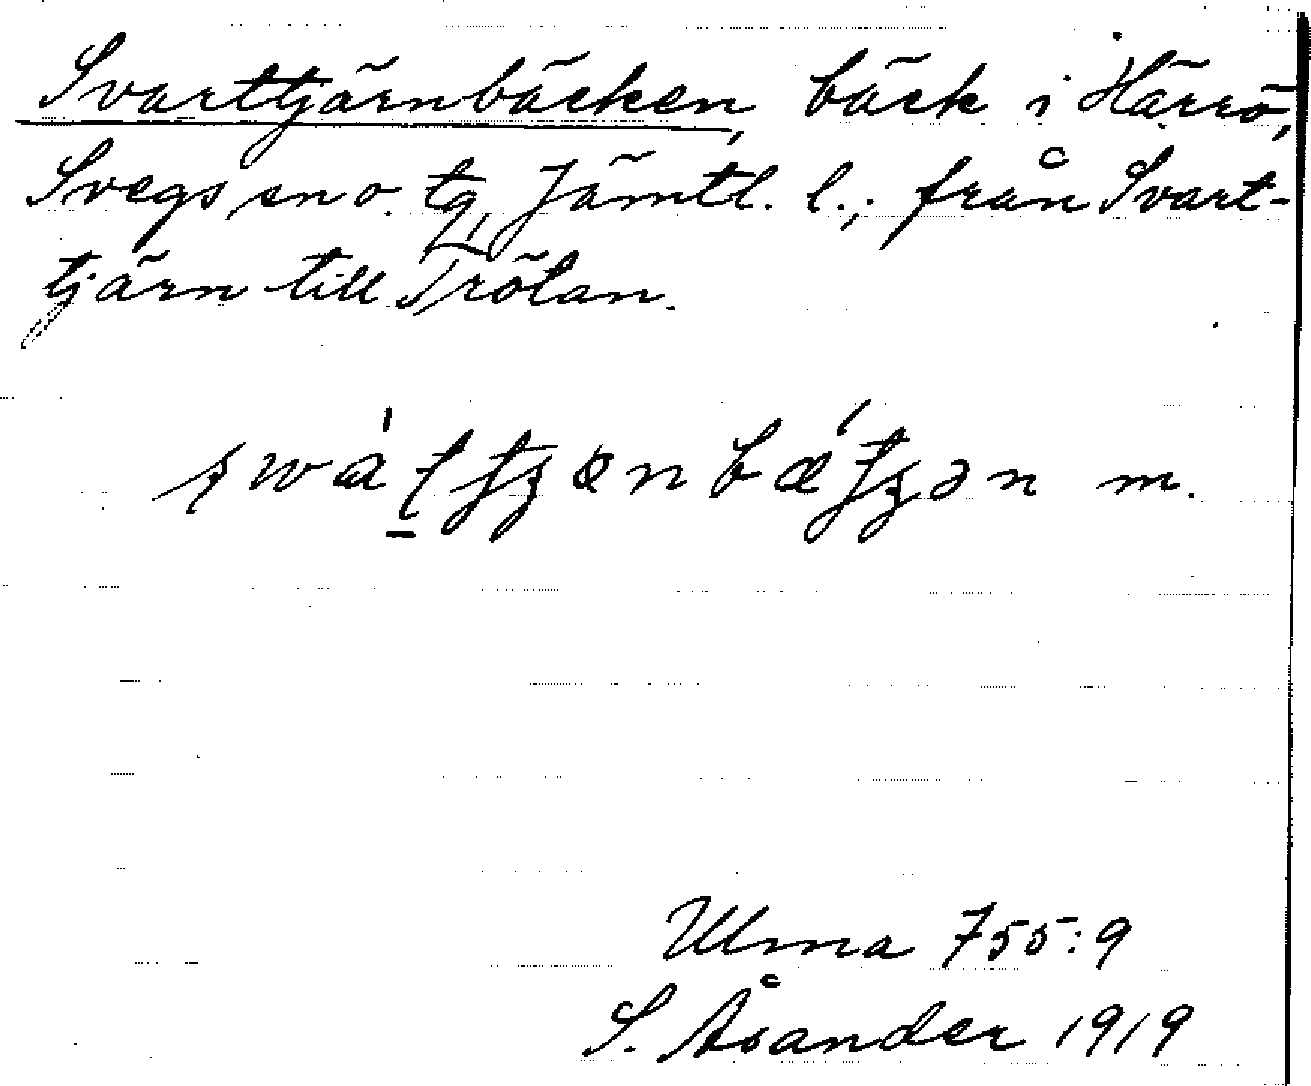 Svarttjärnbäcken, bäck i Härrö,
Svegs sn o. tg, Jämtl. l.; från Svart-
tjärn till Trölan.
m.
Ulma 755:9
S. Åsander 1919